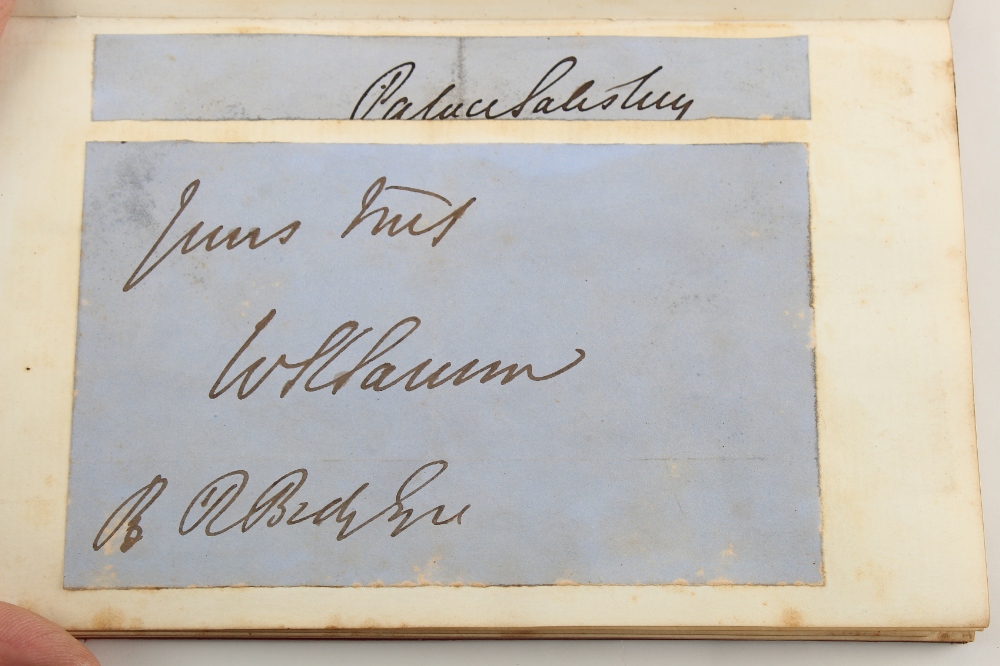 Palace Salisbury
Yours truly
W K Sarum
Esqre